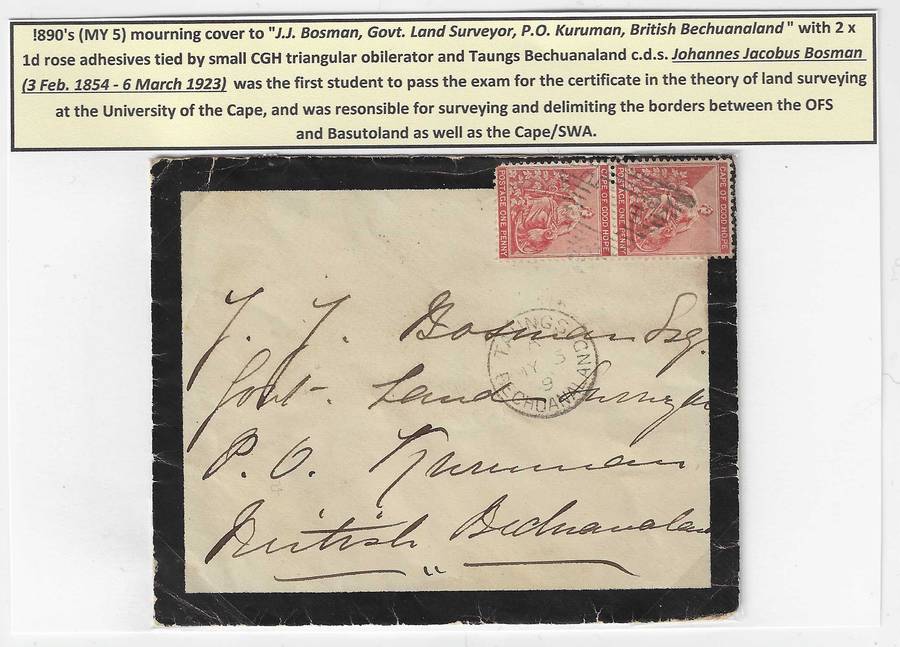 !890's (MY 5) mourning cover to "J.J. Bosman, Govt. Land Surveyor, P.O. Kuruman, British Bechuanaland" with 2 x
1d rose adhesives tied by small CGH triangular obilerator and Taungs Bechuanaland c.d.s. Johannes Jacobus Bosman
(3 Feb. 1854 - 6 March 1923) was the first student to pass the exam for the certificate in the theory of land surveying
at the University of the Cape, and was resonsible for surveying and delimiting the borders between the OFS
and Basutoland as well as the Cape/SWA.
POSTAGE ONE PENNY
OF GOOD HOPE
POSTAGE ONE PENNY
CAPE OF GOOD HOPE
J. J. Bosman Esq.
Govt. Land Surveyor
P. O. Kuruman
British Bechuanaland
MY 5
9
BECHUANALAND